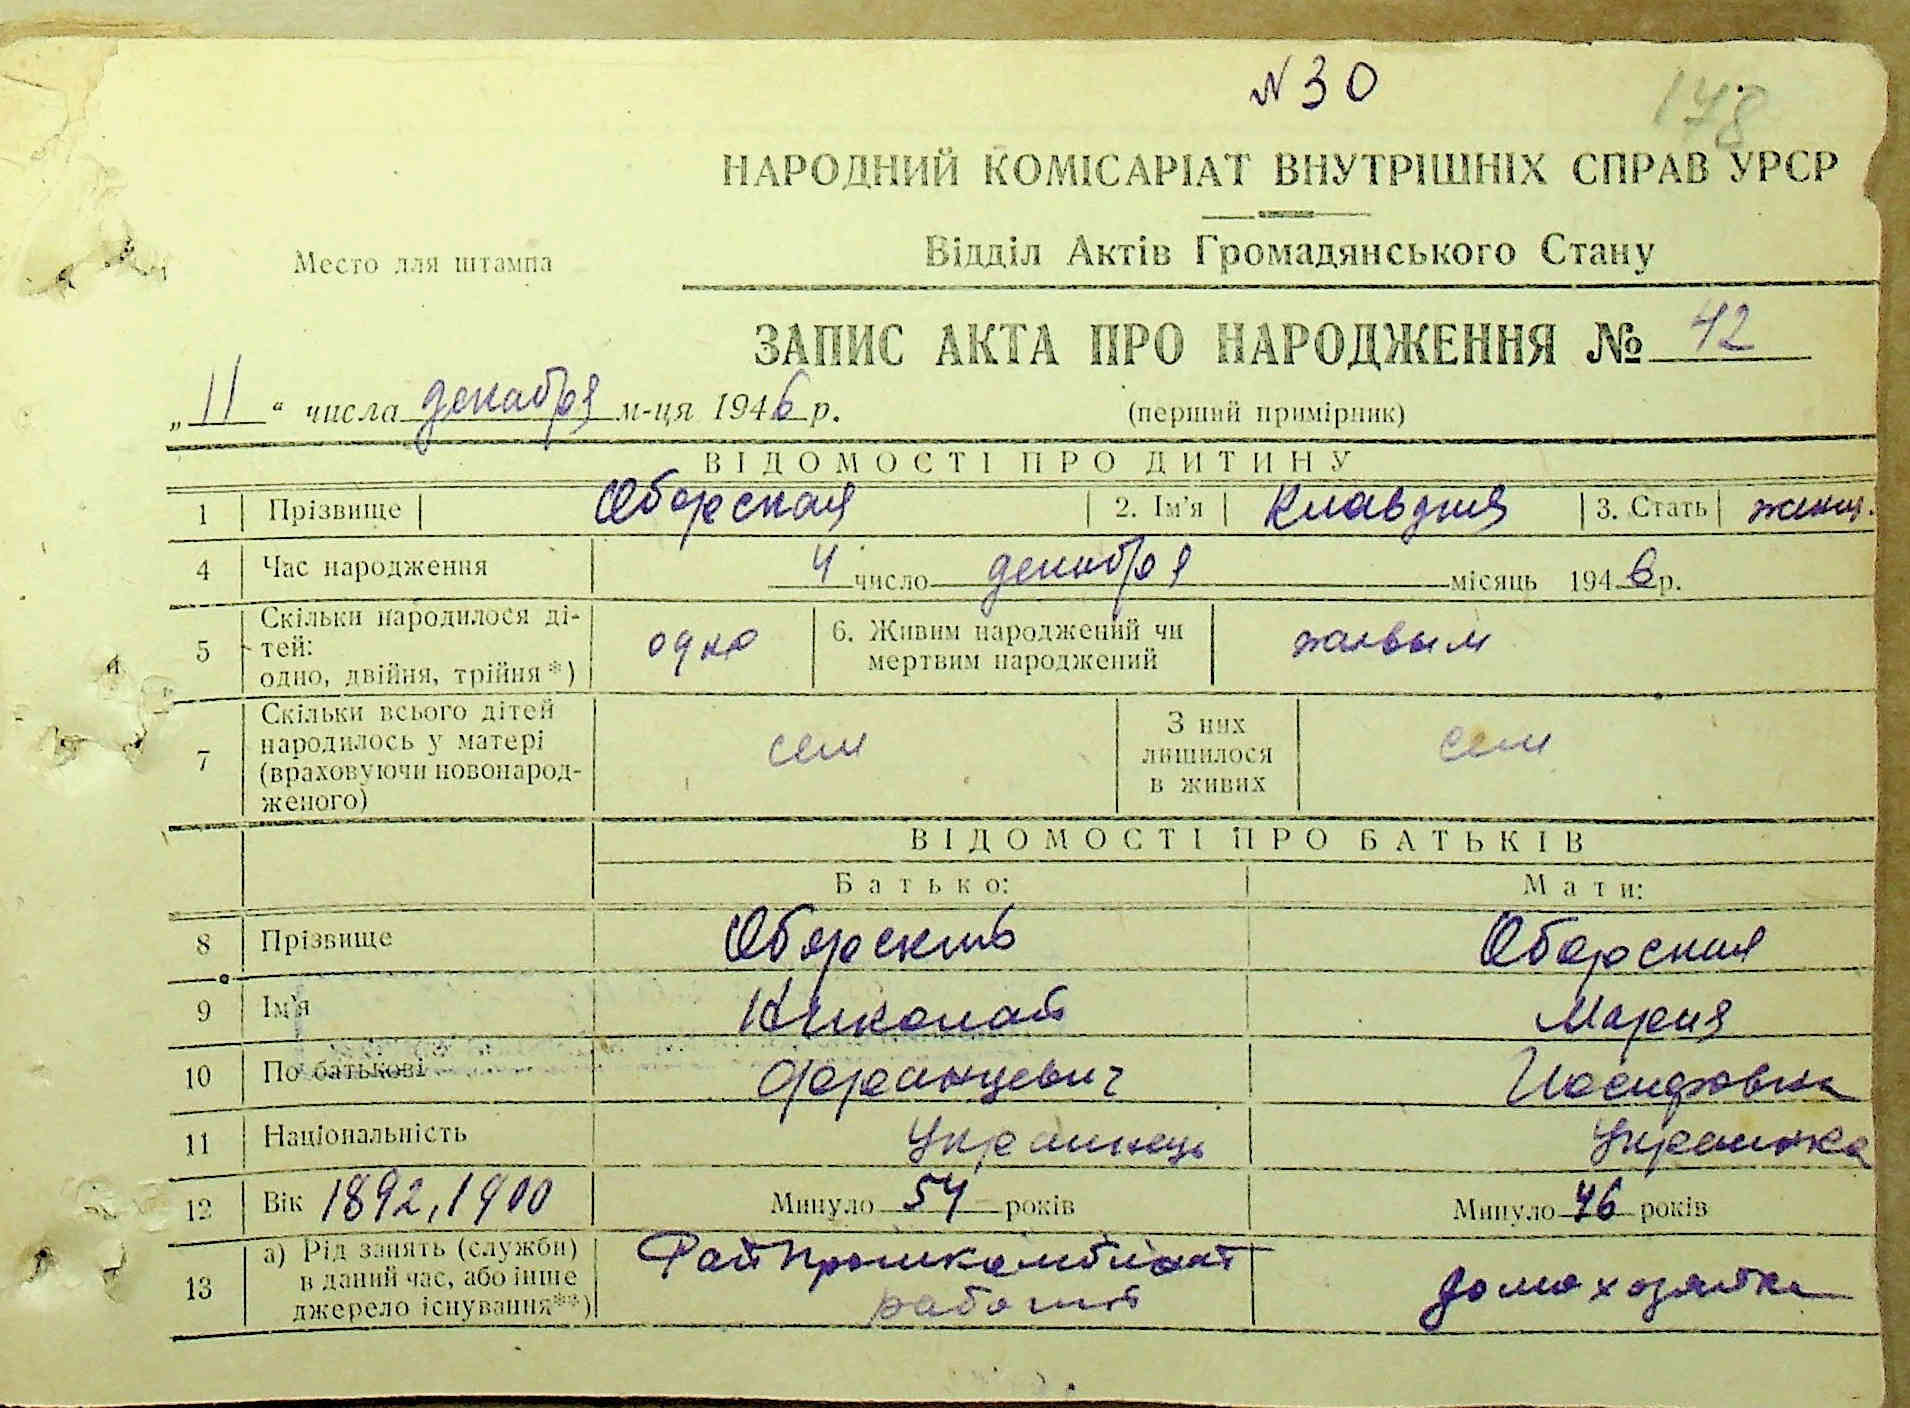 № 30
178
НАРОДНИЙ КОМІСАРІАТ ВНУТРІШНІХ СПРАВ УРСР
Место для штампа
Відділ Актів Громадянського Стану
ЗАПИС АКТА ПРО НАРОДЖЕННЯ № 42
„11“ числа декабря м-ця 1946 р.
(перший примірник)
ВІДОМОСТІ ПРО ДИТИНУ
1 Прізвище Оборская 2. Ім'я Клавдия 3. Стать женщ.
4 Час народження 4 число декабря місяць 1946 р.
5 Скільки народилося ді-
тей:
одно, двійня, трійня*) одно
6. Живим народжений чи
мертвим народжений живым
7 Скільки всього дітей
народилось у матері
(враховуючи новонарод-
женого) сем
З них
лишилося
в живих сем
ВІДОМОСТІ ПРО БАТЬКІВ
Батько: Мати:
8 Прізвище Оборский Оборская
9 Ім'я Николай Мария
10 По батькові Францевич Иосифовна
11 Національність Украинець Украинка
12 Вік 1892, 1900 Минуло 54 років Минуло 46 років
13 а) Рід занять (служби)
в даний час, або інше
джерело існування**)
Райпромкомбінат
рабочий
домохозяйка